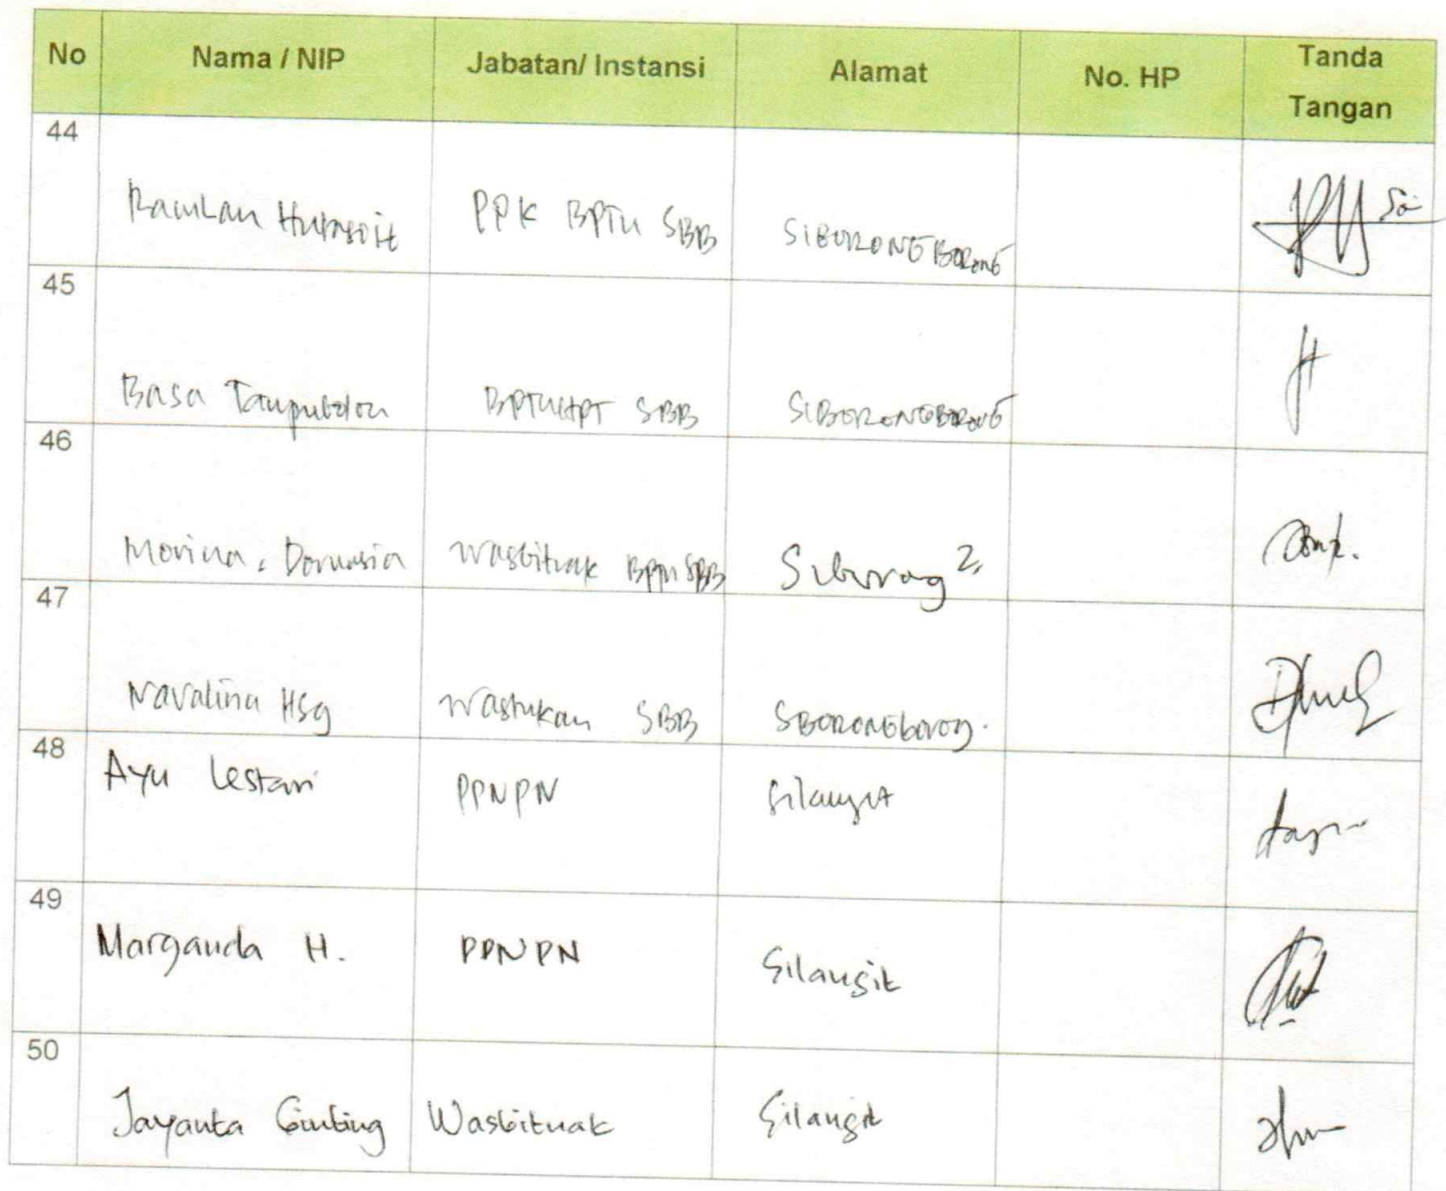 No Nama / NIP Jabatan/ Instansi Alamat No. HP Tanda Tangan
44 Ramlan Hutasoit PPK BPTU SBB SIBORONGBORONG
45 Basa Tampubolon BPTUHPT SBB SIBORONGBORONG
46 Movina. Dormasia Wasbitnak BPTU SBB Siborong2,
47 Navalina HSg Wastukan SBB SBORONGborong.
48 Ayu Lestari PPNPN Silangit
49 Marganda H. PPNPN Silangit
50 Jayanta Ginting Wasbitnak Silangit